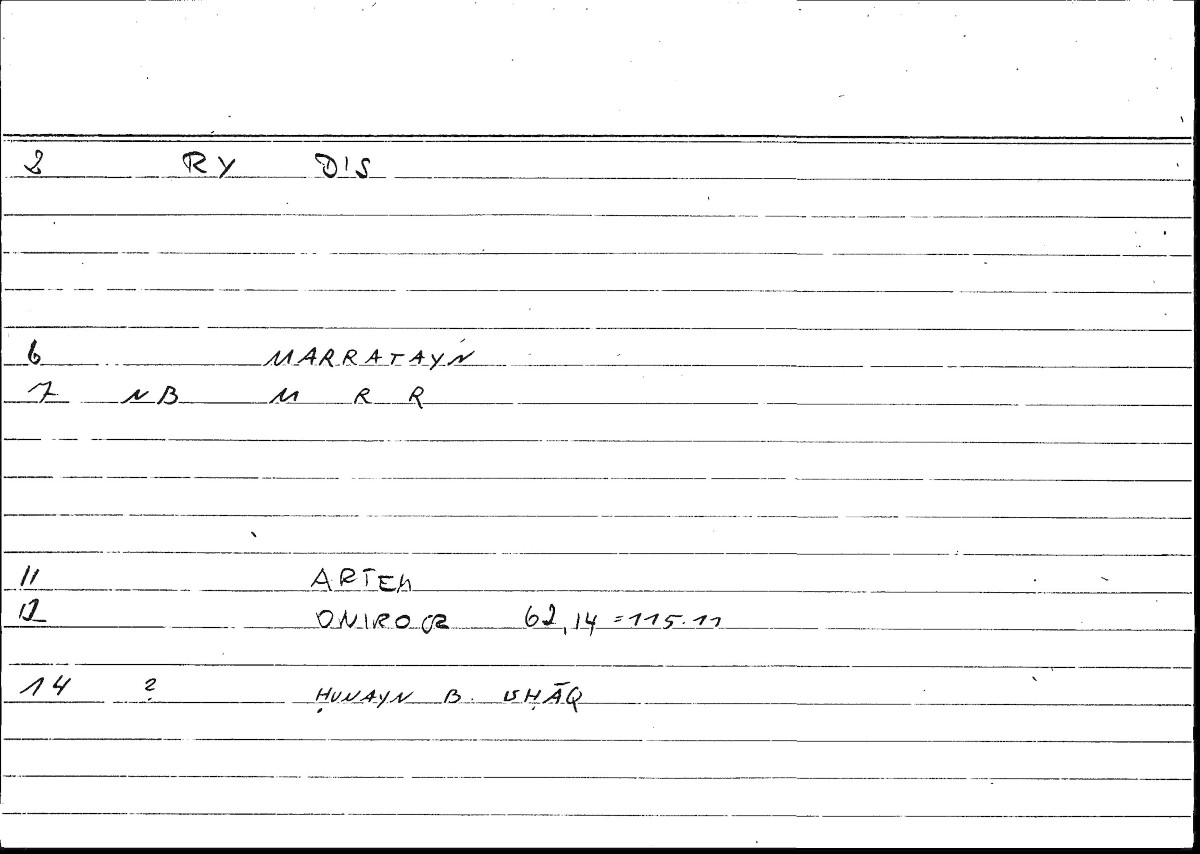 2 RY DIS
6 MARRATAYN
7 NB M R R
11 ARTEM
12 ONIROCR 62,14 = 115.11
14 ? ḤUNAYN B. ISḤĀQ